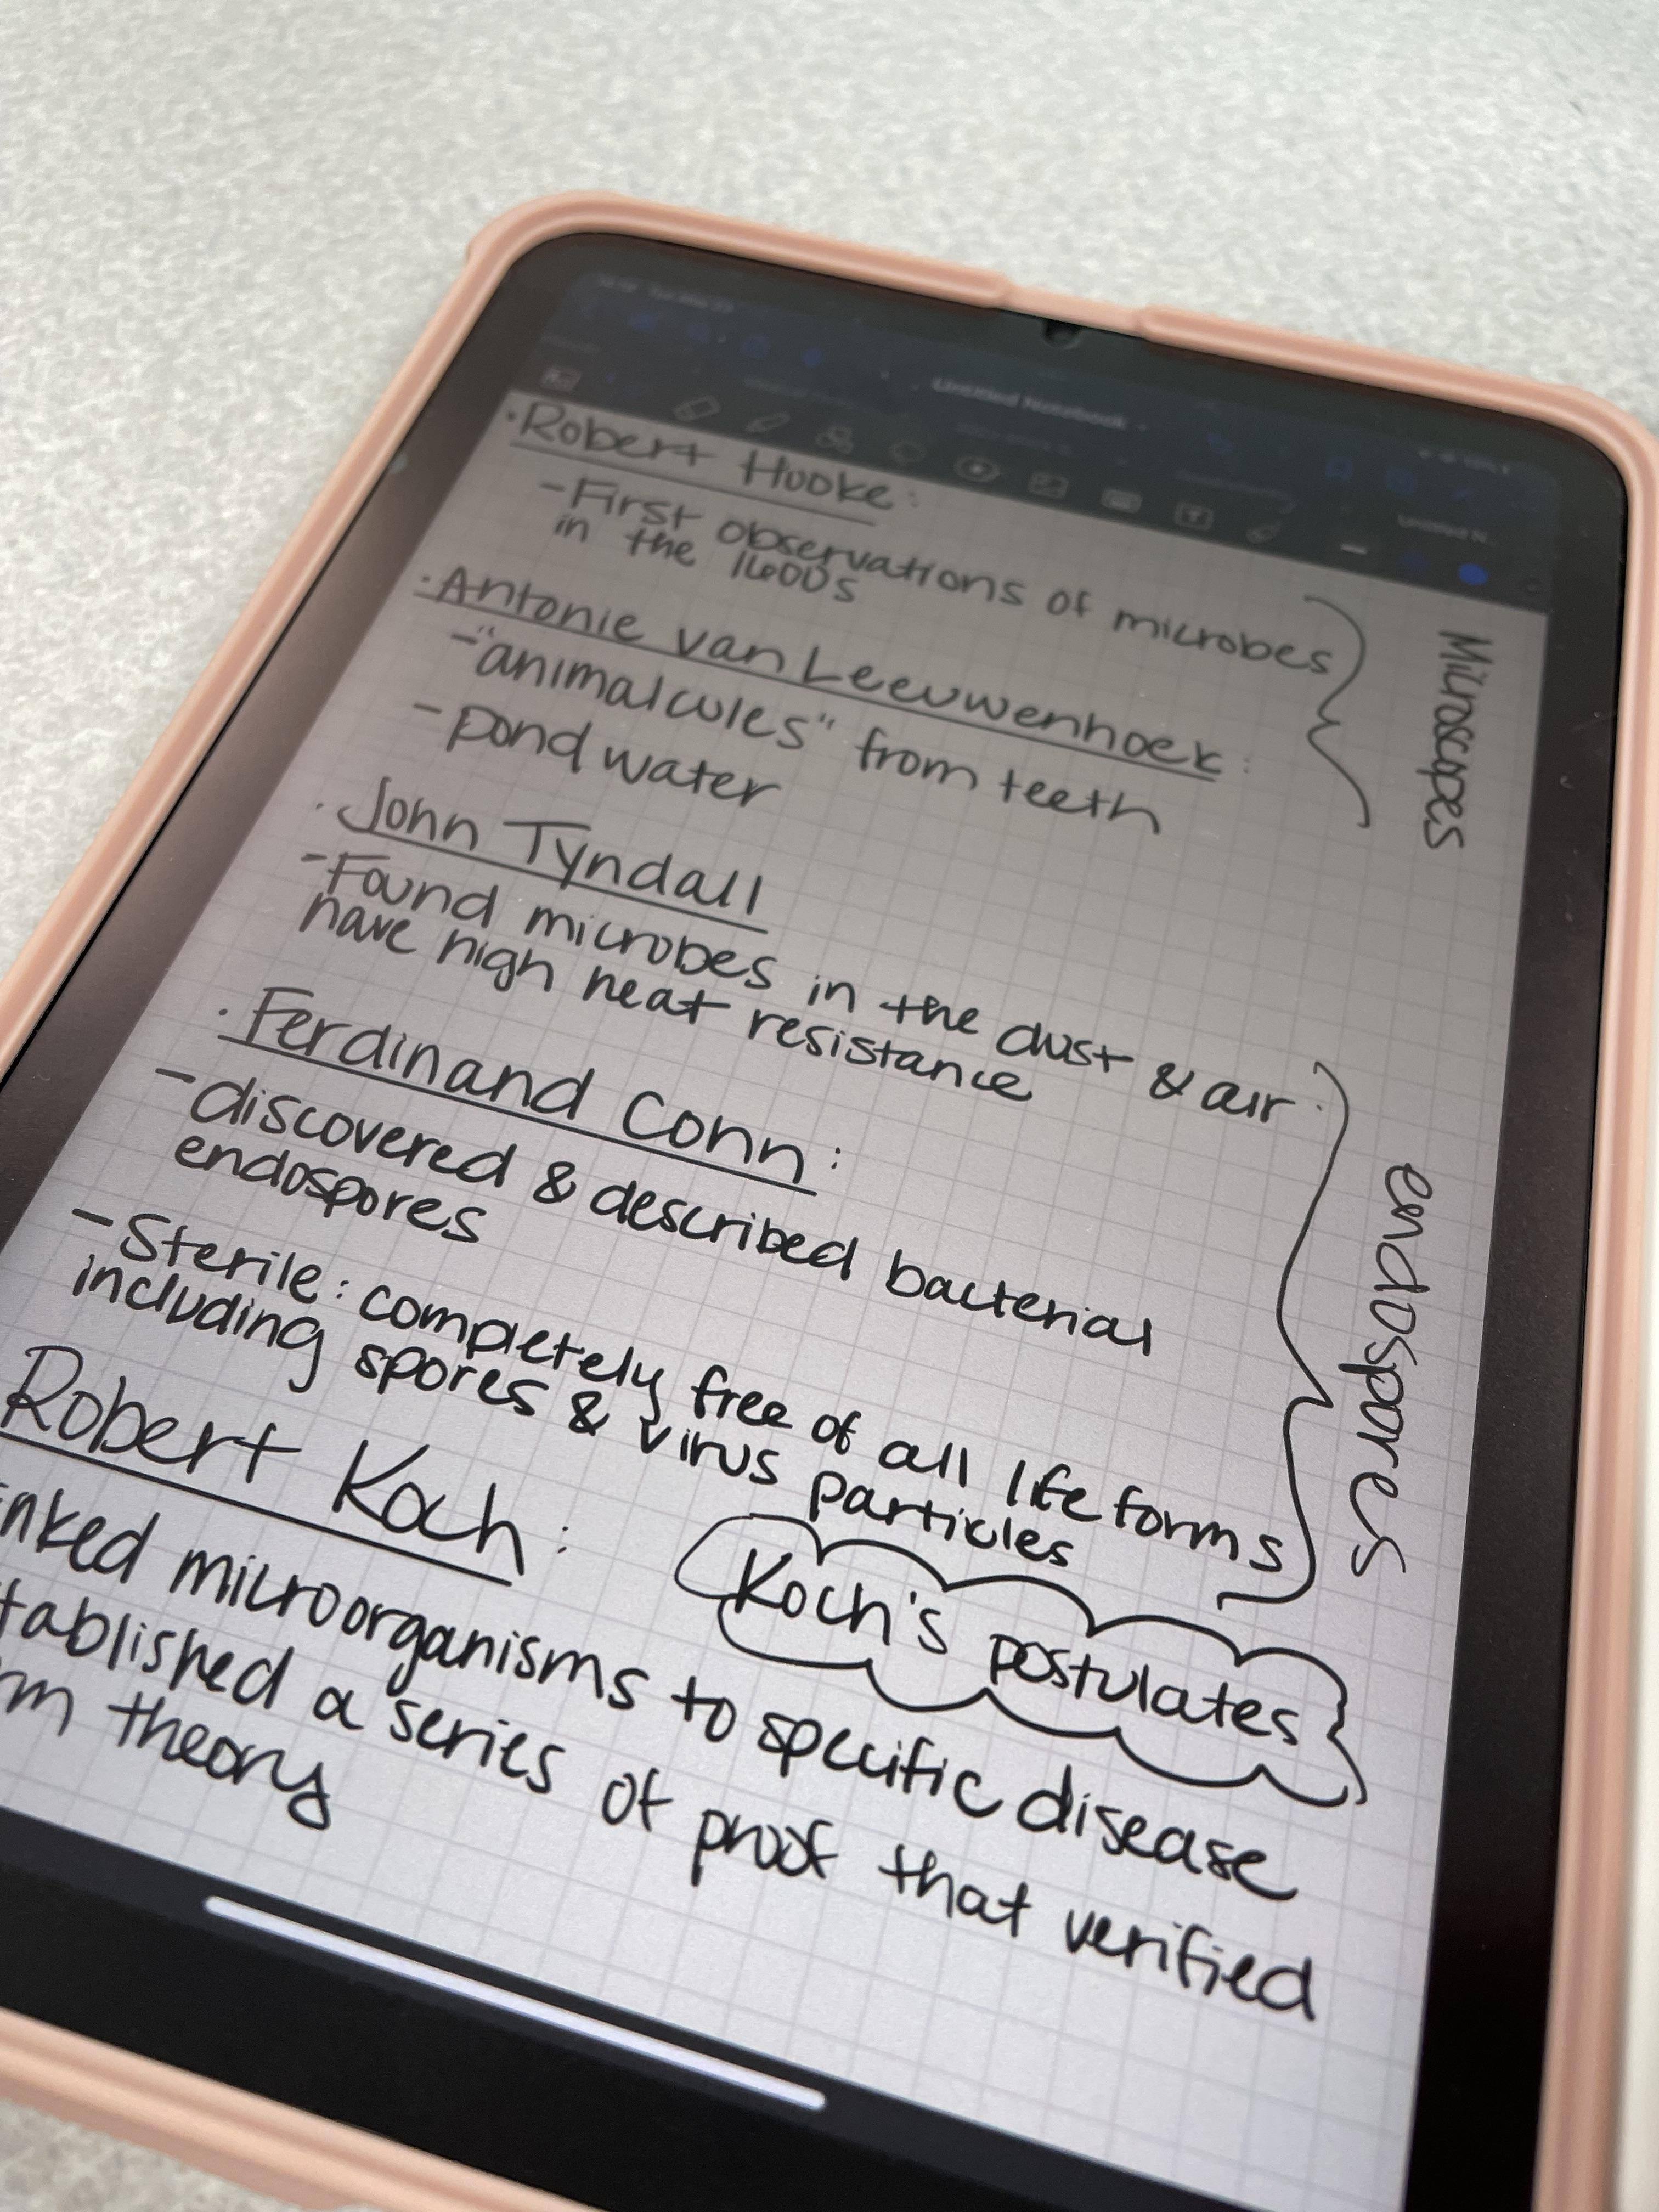 Untitled Notebook
Untitled N...
· Robert Hooke:
- First observations of microbes
in the 1600s
Microscopes
· Antonie van Leeuwenhoek:
- "animalcules" from teeth
- pond water
· John Tyndall
- Found microbes in the dust & air
have high heat resistance
· Ferdinand Cohn:
- discovered & described bacterial
endospores
endospores
- Sterile: completely free of all life forms
including spores & virus particles
Robert Koch:
Koch's postulates
inked microorganisms to specific disease
tablished a series of proof that verified
rm theory